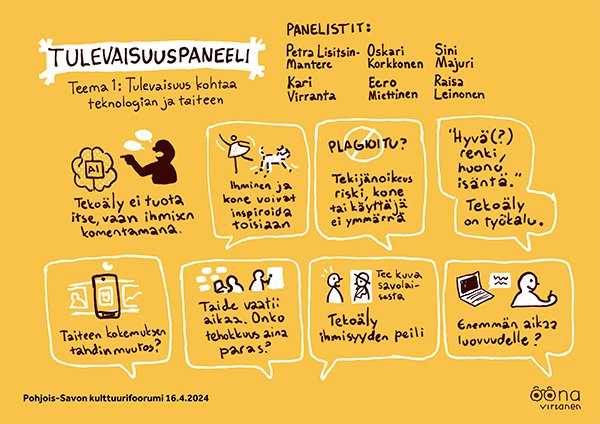 TULEVAISUUSPANEELI
Teema 1: Tulevaisuus kohtaa
teknologian ja taiteen
PANELISTIT:
Petra Lisitsin-
Mantere
Oskari
Korkkonen
Sini
Majuri
Kari
Virranta
Eero
Miettinen
Raisa
Leinonen
AI
Tekoäly ei tuota
itse, vaan ihmisen
komentamana.
Ihminen ja
kone voivat
inspiroida
toisiaan
PLAGIOITU?
Tekijänoikeus
riski, kone
tai käyttäjä
ei ymmärrä
"Hyvä(?)
renki,
huono
isäntä."
Tekoäly
on työkalu.
Taiteen kokemuksen
tahdin muutos?
Taide vaatii
aikaa. Onko
tehokkuus aina
paras?
Tee kuva
savolai-
sesta
Tekoäly
ihmisyyden peili
Enemmän aikaa
luovuudelle?
Pohjois-Savon kulttuurifoorumi 16.4.2024
ôôna
virtanen